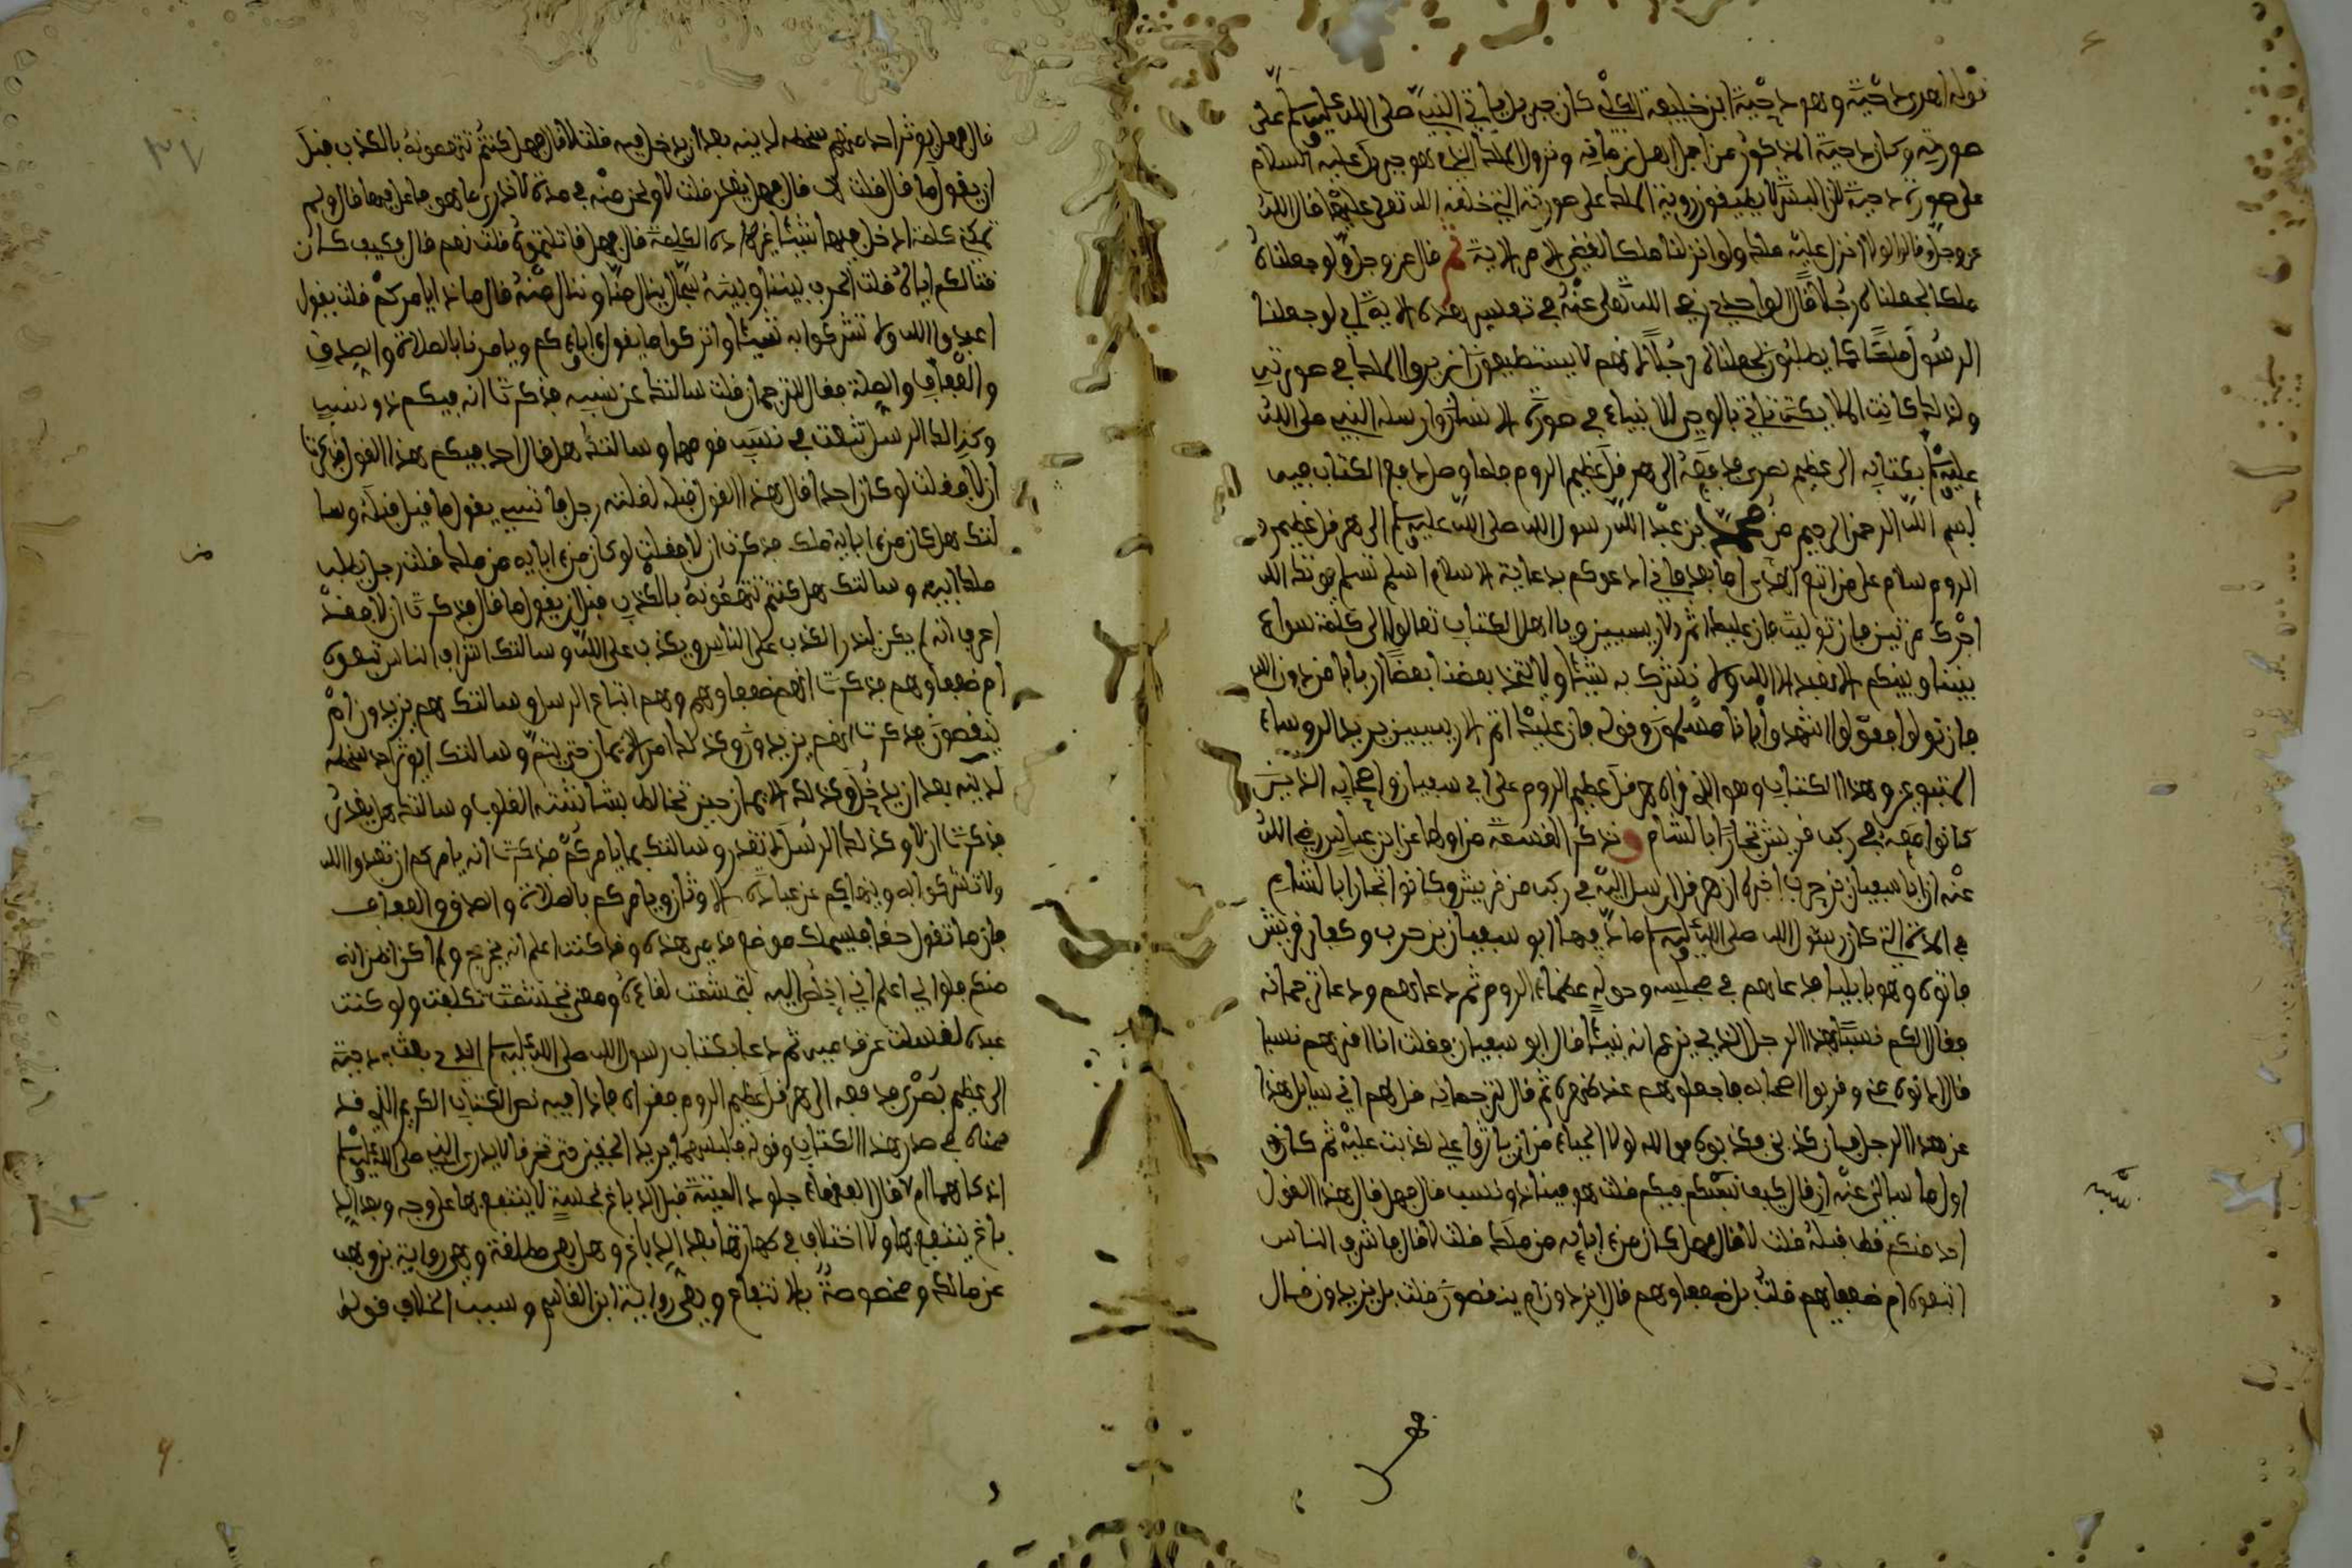 قوله اهدى دحية وهو دحية ابن خليفة الكلبي كان جبريل ياتي النبي صلى الله عليه وسلم على
صورته وكان دحية المذكور من اجمل اهل زمانه ونزول الملك الذي هو جبريل عليه السلام
على صورة دحية لان البشر لا يطيقون روية الملك على صورته التي خلقه الله تعلى عليها قال الله
عز وجل وقالوا لولا انزل عليه ملك ولو انزلنا ملكا لقضي الامر الاية ثم قال عز وجل ولو جعلناه
ملكا لجعلناه رجلا قال الواحدي رضي الله تعلى عنه في تفسير هذه الاية اي لو جعلنا
الرسول ملكا كما يطلبون لجعلناه رجلا لانهم لا يستطيعون ان يروا الملك في صورته
ولذلك كانت الملايكة تاتي بالوحي للانبياء في صورة الانسان وارسله النبي صلى الله
عليه وسلم بكتابه الى عظيم بصرى فدفعه الى هرقل عظيم الروم فلما وصل دفع الكتاب فيه
بسم الله الرحمن الرحيم من محمد بن عبد الله رسول الله صلى الله عليه وسلم الى هرقل عظيم
الروم سلام على من اتبع الهدى اما بعد فاني ادعوكم بدعاية الاسلام اسلم تسلم يوتك الله
اجرك مرتين فان توليت فان عليك اثم الاريسيين ويا اهل الكتاب تعالوا الى كلمة سواء
بيننا وبينكم الا نعبد الا الله ولا نشرك به شيئا ولا يتخذ بعضنا بعضا اربابا من دون الله
فان تولوا فقولوا اشهدوا بانا مسلمون وقوله فان عليك اثم الاريسيين يريد الروساء
المتبوعين وهذا الكتاب وهو الذي قراه هرقل عظيم الروم على ابي سفيان واصحابه الذين
كانوا معه في ركب قريش تجارا بالشام وتذكر القصة من اولها عن ابن عباس رضي الله
عنه ان ابا سفيان بن حرب اخبره ان هرقل ارسل اليه في ركب من قريش وكانوا تجارا بالشام
في المدة التي كان رسول الله صلى الله عليه وسلم ماد فيها ابو سفيان بن حرب وكفار قريش
فاتوه وهو بايليا فدعاهم في مجلسه وحوله عظماء الروم ثم دعاهم ودعا ترجمانه
فقال ايكم نسبا بهذا الرجل الذي يزعم انه نبي قال ابو سفيان فقلت انا اقربهم نسبا
قال ادنوه مني وقربوا اصحابه فاجعلوهم عند ظهره ثم قال لترجمانه قل لهم اني سايل هذا
عن هذا الرجل فان كذبني فكذبوه فوالله لولا الحياء من ان ياثروا علي لكذبت عليه ثم كان
اول ما سالني عنه ان قال كيف نسبه فيكم قلت هو فينا ذو نسب قال فهل قال هذا القول
احد منكم قط قبله قلت لا قال فهل كان من ابايه من ملك قلت لا قال فاشرف الناس
اتبعوه ام ضعفاءهم قلت بل ضعفاوهم قال ايزيدون ام ينقصون قلت بل يزيدون قال
هل
قال فهل يوثر احد منهم سخطه لدينه بعد ان يدخل فيه قلت لا قال فهل كنتم تتهمونه بالكذب قبل
ان يقول ما قال قلت لا قال فهل يغدر قلت لا ونحن منه في مدة لا ندري ما هو فاعل فيها قال ولم
تمكني كلمة ادخل فيها شيئا غير هذه الكلمة قال فهل قاتلتموه قلت نعم قال وكيف كان
قتالكم اياه قلت الحرب بيننا وبينه سجال ينال منا وننال منه قال ماذا يامركم قلت يقول
اعبدوا الله ولا تشركوا به شيئا واتركوا ما يقول اباءكم ويامرنا بالصلاة والصدق
والعفاف والصلة فقال للترجمان قلت سالتك عن نسبه فذكرت انه فيكم ذو نسب
وكذلك الرسل تبعث في نسب قومها وسالتك هل قال احد فيكم هذا القول فذكرت
ان لا فقلت لو كان احد قال هذا القول قبله لقلت رجل ياتسي بقول ما قيل قبله وسا
لتك هل كان من ابايه ملك فذكرت ان لا فقلت لو كان من ابايه من ملك قلت رجل يطلب
ملك ابيه وسالتك هل كنتم تتهمونه بالكذب قبل ان يقول ما قال فذكرت ان لا فقد
اعرف انه لم يكن ليذر الكذب على الناس ويكذب على الله وسالتك اشراف الناس تبعوه
ام ضعفاوهم فذكرت انهم ضعفاوهم وهم اتباع الرسل وسالتك هم يزيدون ام
ينقصون فذكرت انهم يزيدون وكذلك امر الايمان حتى يتم وسالتك ايوثر احد سخطه
لدينه بعد ان يدخل وكذلك الايمان حين تخالط بشاشته القلوب وسالتك هل يغدر
فذكرت ان لا وكذلك الرسل لا تغدر وسالتك بما يامركم فذكرت انه يامركم ان تعبدوا الله
ولا تشركوا به وينهاكم عن عبادة الاوثان ويامركم بالصلاة والصدق والعفاف
فان ما تقول حقا فسيملك موضع قدمي هذه وقد كنت اعلم انه يخرج ولم اكن اظن انه
منكم فلو اني اعلم اني اخلص اليه لتجشمت لقاءه ومعنى تجشمت تكلفت ولو كنت
عنده لغسلت عن قدميه ثم دعا بكتاب رسول الله صلى الله عليه وسلم الذي بعث به دحية
الى عظيم بصرى فدفعه الى هرقل عظيم الروم فقراه فاذا فيه نص الكتاب الكريم الذي قد
في صدر هذا الكتاب وقوله يريد الخفين لا يدري النبي صلى الله عليه وسلم
اذكاهما ام لا قال العلماء جلود الميتة قبل الدباغ نجسة لا ينتفع بها على وجه وبعد الد
باغ ينتفع بها ولا اختلاف في طهارتها بعد الدباغ وهل هي مطلقة وهي رواية بن وهب
عن مالك ومخصوصة بالانتفاع وهي رواية ابن القاسم وسبب الخلاف قوله